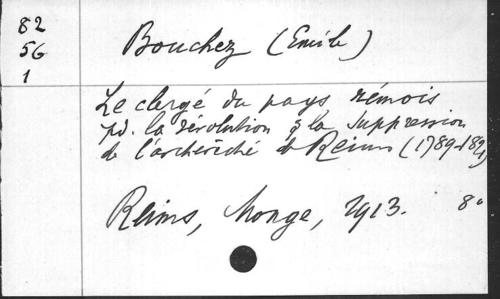 82
56
1
Bouchez (Emile)
Le clergé du pays rémois
pd. la révolution & la suppression
de l'archévêché de Reims (1789-1821)
Reims, Monge, 1913. 8°